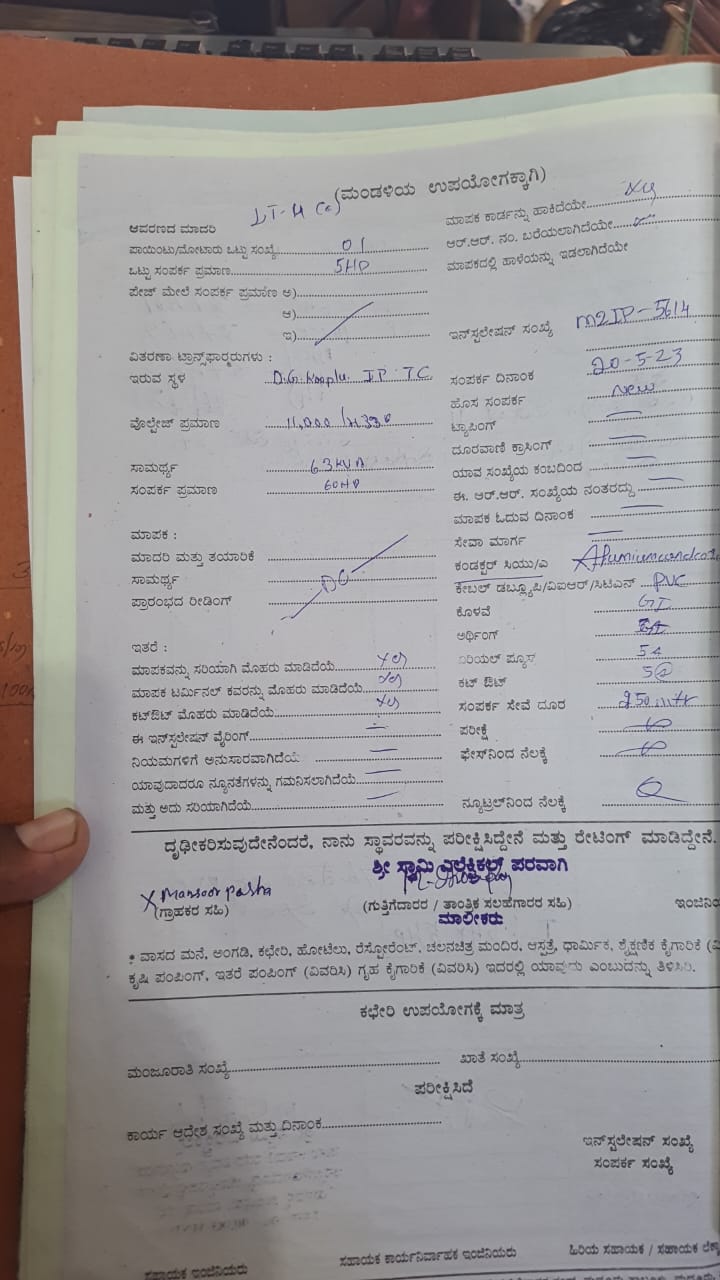 (ಮಂಡಳಿಯ ಉಪಯೋಗಕ್ಕಾಗಿ)
ಆವರಣದ ಮಾದರಿ LT-4 (a)
ಪಾಯಿಂಟು/ಮೋಟಾರು ಒಟ್ಟು ಸಂಖ್ಯೆ 01
ಒಟ್ಟು ಸಂಪರ್ಕ ಪ್ರಮಾಣ 5HP
ಪೇಜ್ ಮೇಲೆ ಸಂಪರ್ಕ ಪ್ರಮಾಣ ಅ)
ಆ)
ಇ)
ವಿತರಣಾ ಟ್ರಾನ್ಸ್‌ಫಾರ‍್ಮರುಗಳು :
ಇರುವ ಸ್ಥಳ D.G. Kopplu IP TC
ವೊಲ್ಟೇಜ್ ಪ್ರಮಾಣ 11,000 /
ಸಾಮರ್ಥ್ಯ 63 KVA
ಸಂಪರ್ಕ ಪ್ರಮಾಣ 60HP
ಮಾಪಕ :
ಮಾದರಿ ಮತ್ತು ತಯಾರಿಕೆ
ಸಾಮರ್ಥ್ಯ DC
ಪ್ರಾರಂಭದ ರೀಡಿಂಗ್
ಇತರೆ :
ಮಾಪಕವನ್ನು ಸರಿಯಾಗಿ ಮೊಹರು ಮಾಡಿದೆಯೆ yes
ಮಾಪಕ ಟರ್ಮಿನಲ್ ಕವರನ್ನು ಮೊಹರು ಮಾಡಿದೆಯೆ yes
ಕಟ್‌ಔಟ್ ಮೊಹರು ಮಾಡಿದೆಯೆ yes
ಈ ಇನ್‌ಸ್ಟಲೇಷನ್ ವೈರಿಂಗ್
ನಿಯಮಗಳಿಗೆ ಅನುಸಾರವಾಗಿದೆಯೆ
ಯಾವುದಾದರೂ ನ್ಯೂನತೆಗಳನ್ನು ಗಮನಿಸಲಾಗಿದೆಯೆ
ಮತ್ತು ಅದು ಸರಿಯಾಗಿದೆಯೆ
ಮಾಪಕ ಕಾರ್ಡನ್ನು ಹಾಕಿದೆಯೇ yes
ಆರ್.ಆರ್. ನಂ. ಬರೆಯಲಾಗಿದೆಯೇ
ಮಾಪಕದಲ್ಲಿ ಹಾಳೆಯನ್ನು ಇಡಲಾಗಿದೆಯೇ
ಇನ್‌ಸ್ಟಲೇಷನ್ ಸಂಖ್ಯೆ M2IP-5614
ಸಂಪರ್ಕ ದಿನಾಂಕ 20-5-23
ಹೊಸ ಸಂಪರ್ಕ New
ಟ್ಯಾಪಿಂಗ್
ದೂರವಾಣಿ ಕ್ರಾಸಿಂಗ್
ಯಾವ ಸಂಖ್ಯೆಯ ಕಂಬದಿಂದ
ಈ. ಆರ್.ಆರ್. ಸಂಖ್ಯೆಯ ನಂತರದ್ದು
ಮಾಪಕ ಓದುವ ದಿನಾಂಕ
ಸೇವಾ ಮಾರ್ಗ
ಕಂಡಕ್ಟರ್ ಸಿಯು/ಎ
ಕೇಬಲ್ ಡಬ್ಲ್ಯೂಪಿ/ವಿಐಆರ್/ಸಿಟಿಎಸ್ PVC
ಕೊಳವೆ GI
ಅರ್ಥಿಂಗ್
ಏರಿಯಲ್ ಫ್ಯೂಸ್
ಕಟ್ ಔಟ್
ಸಂಪರ್ಕ ಸೇವೆ ದೂರ 250 mtr
ಪರೀಕ್ಷೆ
ಫೇಸ್‌ನಿಂದ ನೆಲಕ್ಕೆ
ನ್ಯೂಟ್ರಲ್‌ನಿಂದ ನೆಲಕ್ಕೆ
ದೃಢೀಕರಿಸುವುದೇನೆಂದರೆ, ನಾನು ಸ್ಥಾವರವನ್ನು ಪರೀಕ್ಷಿಸಿದ್ದೇನೆ ಮತ್ತು ರೇಟಿಂಗ್ ಮಾಡಿದ್ದೇನೆ.
ಶ್ರೀ ಸ್ವಾಮಿ ಎಲೆಕ್ಟ್ರಿಕಲ್ಸ್ ಪರವಾಗಿ
x Mansoor Pasha
(ಗ್ರಾಹಕರ ಸಹಿ) (ಗುತ್ತಿಗೆದಾರರ / ತಾಂತ್ರಿಕ ಸಲಹೆಗಾರರ ಸಹಿ) ಇಂಜಿನಿಯ
ಮಾಲೀಕರು
• ವಾಸದ ಮನೆ, ಅಂಗಡಿ, ಕಛೇರಿ, ಹೋಟೆಲು, ರೆಸ್ಟೋರೆಂಟ್, ಚಲನಚಿತ್ರ ಮಂದಿರ, ಆಸ್ಪತ್ರೆ, ಧಾರ್ಮಿಕ, ಶೈಕ್ಷಣಿಕ ಕೈಗಾರಿಕೆ (ವಿ
ಕೃಷಿ ಪಂಪಿಂಗ್, ಇತರೆ ಪಂಪಿಂಗ್ (ವಿವರಿಸಿ) ಗೃಹ ಕೈಗಾರಿಕೆ (ವಿವರಿಸಿ) ಇದರಲ್ಲಿ ಯಾವುದು ಎಂಬುದನ್ನು ತಿಳಿಸಿರಿ.
ಕಛೇರಿ ಉಪಯೋಗಕ್ಕೆ ಮಾತ್ರ
ಮಂಜೂರಾತಿ ಸಂಖ್ಯೆ ಖಾತೆ ಸಂಖ್ಯೆ
ಪರೀಕ್ಷಿಸಿದೆ
ಕಾರ್ಯ ಆದೇಶ ಸಂಖ್ಯೆ ಮತ್ತು ದಿನಾಂಕ
ಇನ್‌ಸ್ಟಲೇಷನ್ ಸಂಖ್ಯೆ
ಸಂಪರ್ಕ ಸಂಖ್ಯೆ
ಸಹಾಯಕ ಇಂಜಿನಿಯರು ಸಹಾಯಕ ಕಾರ್ಯನಿರ್ವಾಹಕ ಇಂಜಿನಿಯರು ಹಿರಿಯ ಸಹಾಯಕ / ಸಹಾಯಕ ಲೆಕ್ಕ